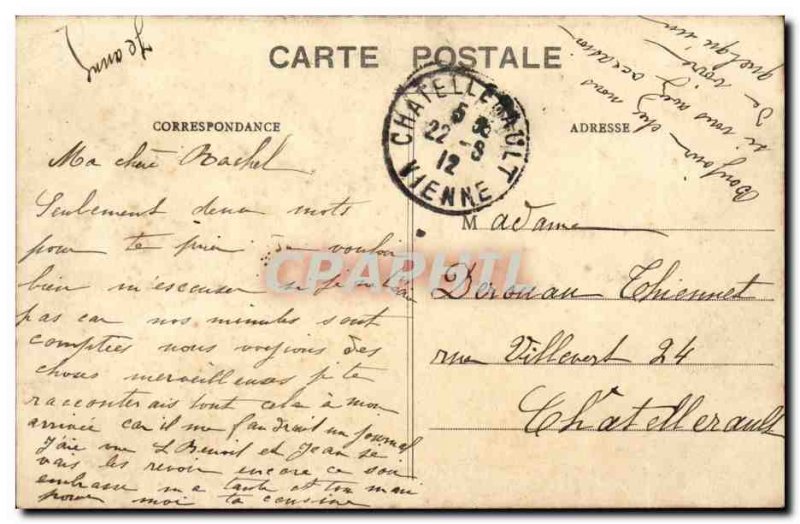 CARTE POSTALE
CORRESPONDANCE
ADRESSE
CHATELLERAULT
5
22 - 8
12
VIENNE
Ma chère Rachel
Seulement deux mots
pour te prier de vouloir
bien m'escuser si je
pas car nos minutes sont
comptées nous voyons des
choses merveilleuses je te
raconterais tout cela à mon
arrivée car il me faudrait un journal
J'aie vue Benoit et Jean je
vais les revoir encore ce soir
embrasse ma tante et ton mari
pour moi ta cousine
Jeanne
Bonjour chez nous
si vous avez occasion
de voir
quelqu'un
Madame
Derouau Thiennet
rue Villevert 24
Châtellerault
CPAPHIL